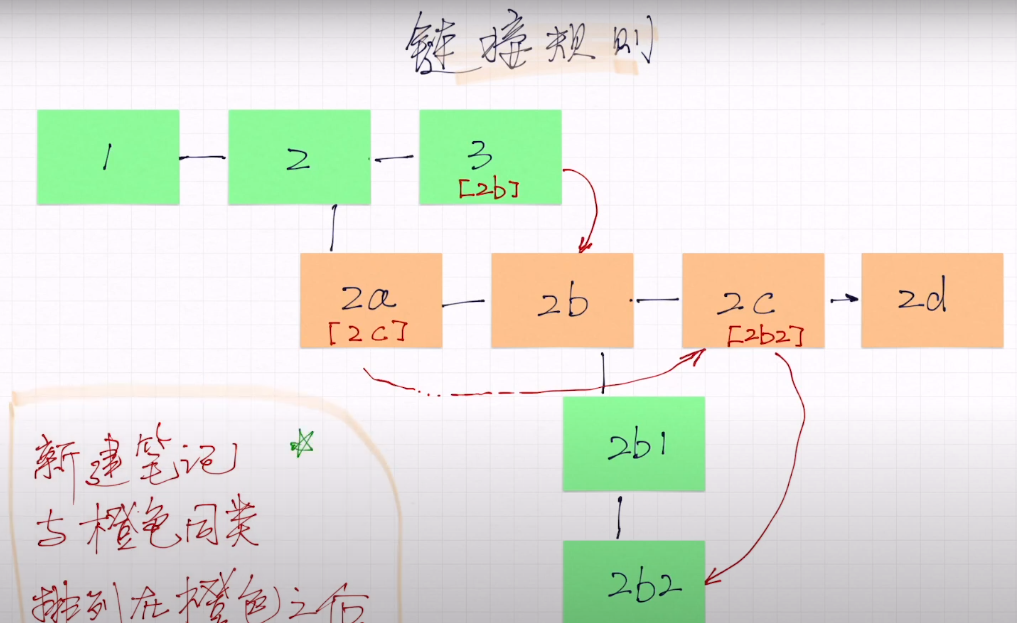 链接规则
1
2
3
[2b]
2a
[2c]
2b
2c
[2b2]
2d
2b1
2b2
新建笔记
与橙色同类
排列在橙色之后